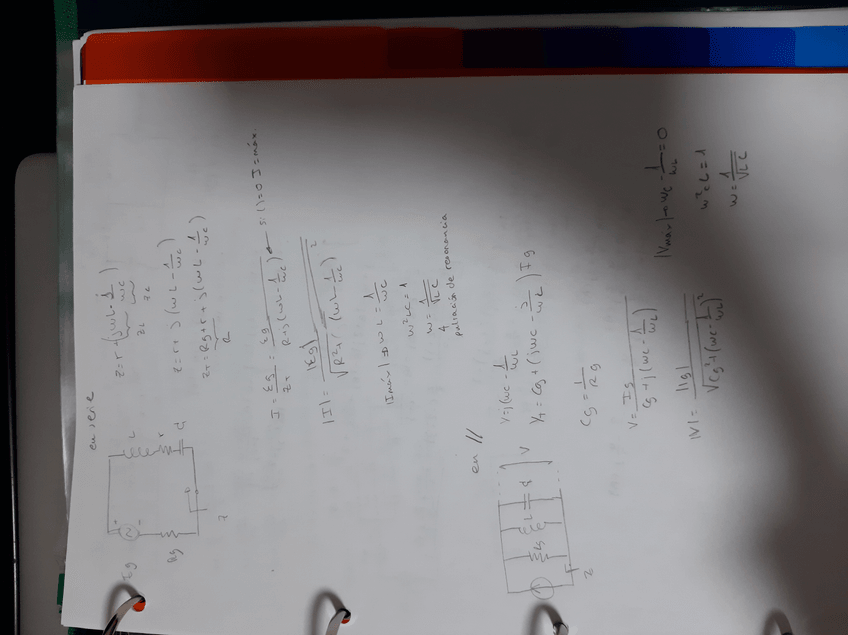 en serie
Z = r + (jωL - j/ωC)
Z_L Z_C
Z = r + j(ωL - 1/ωC)
Z_T = Rg + r + j(ωL - 1/ωC)
R
Eg
Rg
L
r
C
Z
I = Eg/Z_T = Eg/(R + j(ωL - 1/ωC)) ← si ( ) = 0 I = máx.
|I| = |Eg|/√(R² + (ωL - 1/ωC)²)
|Imáx| ⇒ ωL = 1/ωC
ω²LC = 1
ω = 1/√LC
pulsación de resonancia
en //
Rg
L
C
V
Z
Y = j(ωC - 1/ωL
Y_T = Gg + (jωC - j/ωL) Ig
Gg = 1/Rg
V = Ig/(Gg + j(ωC - 1/ωL))
|V| = |Ig|/√(Gg² + (ωC - 1/ωL)²
|Vmáx| → ωC - 1/ωL = 0
ω²CL = 1
ω = 1/√LC